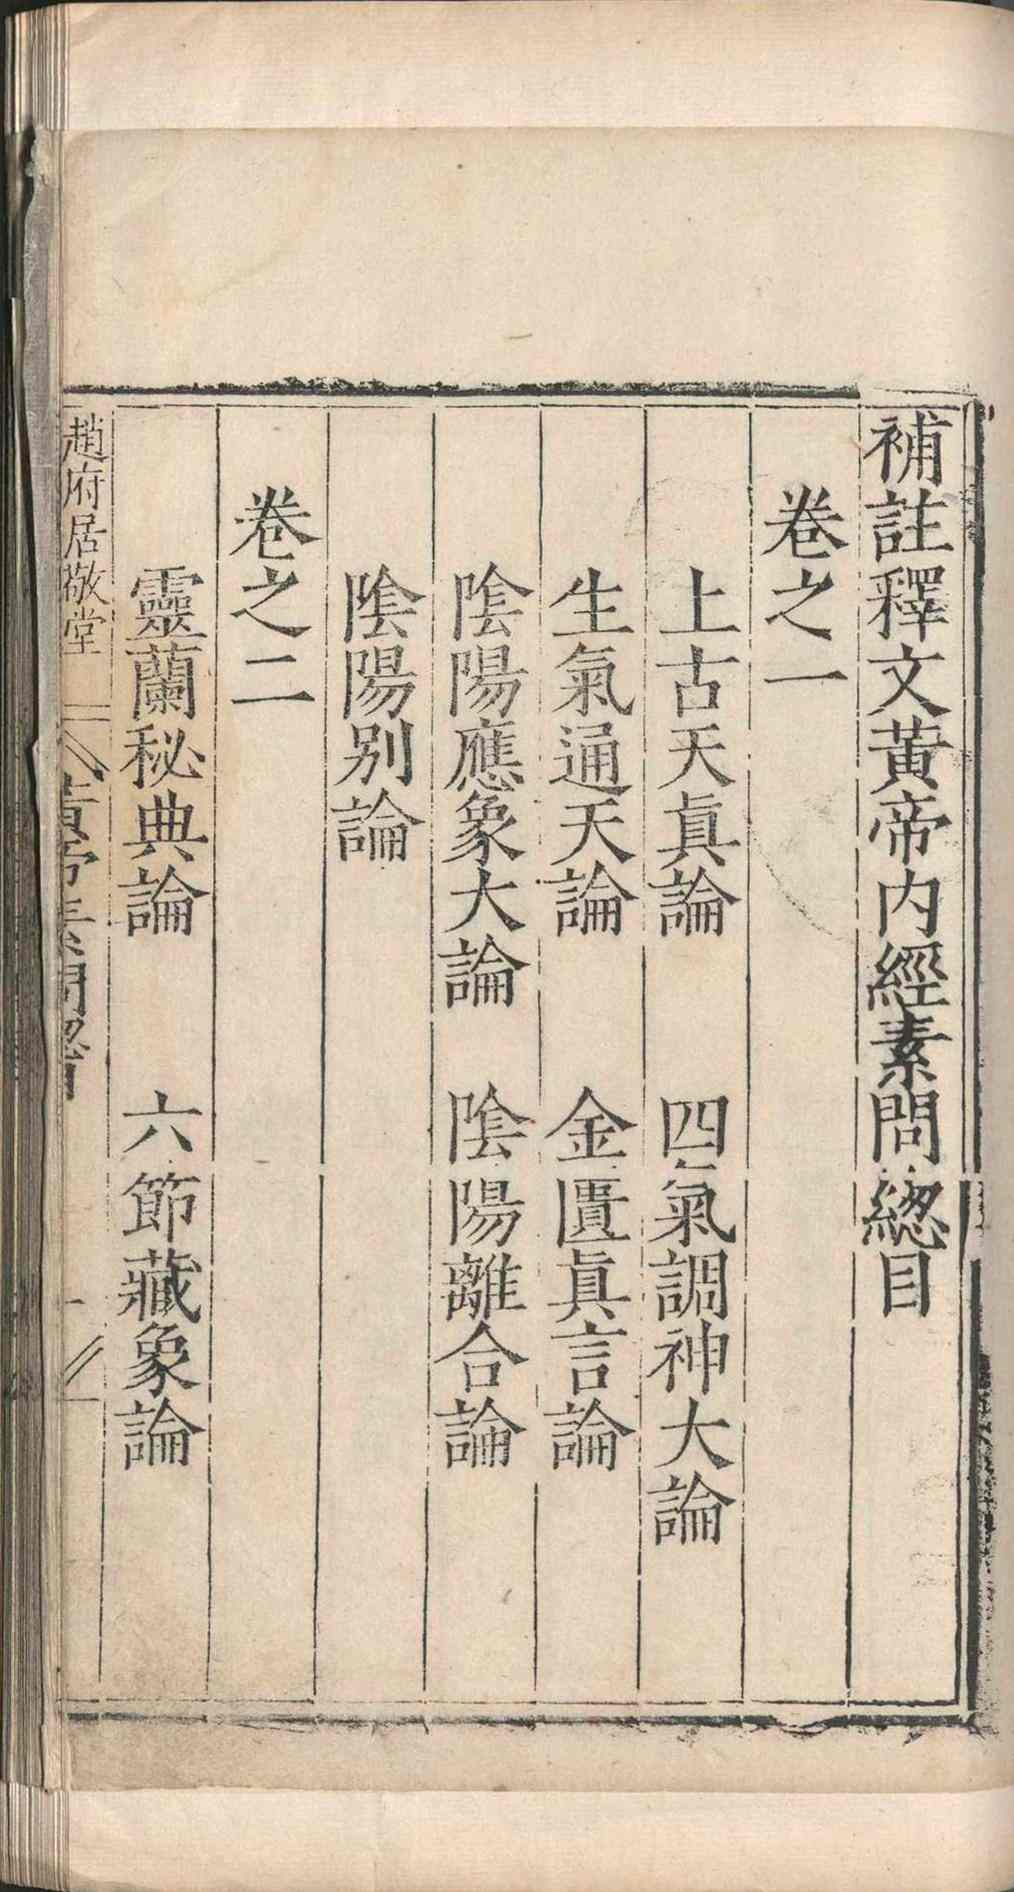 補註釋文黃帝内經素問總目
卷之一
上古天眞論　四氣調神大論
生氣通天論　金匱眞言論
陰陽應象大論　陰陽離合論
陰陽别論
卷之二
靈蘭秘典論　六節藏象論
趙府居敬堂
黃帝素問總目　一